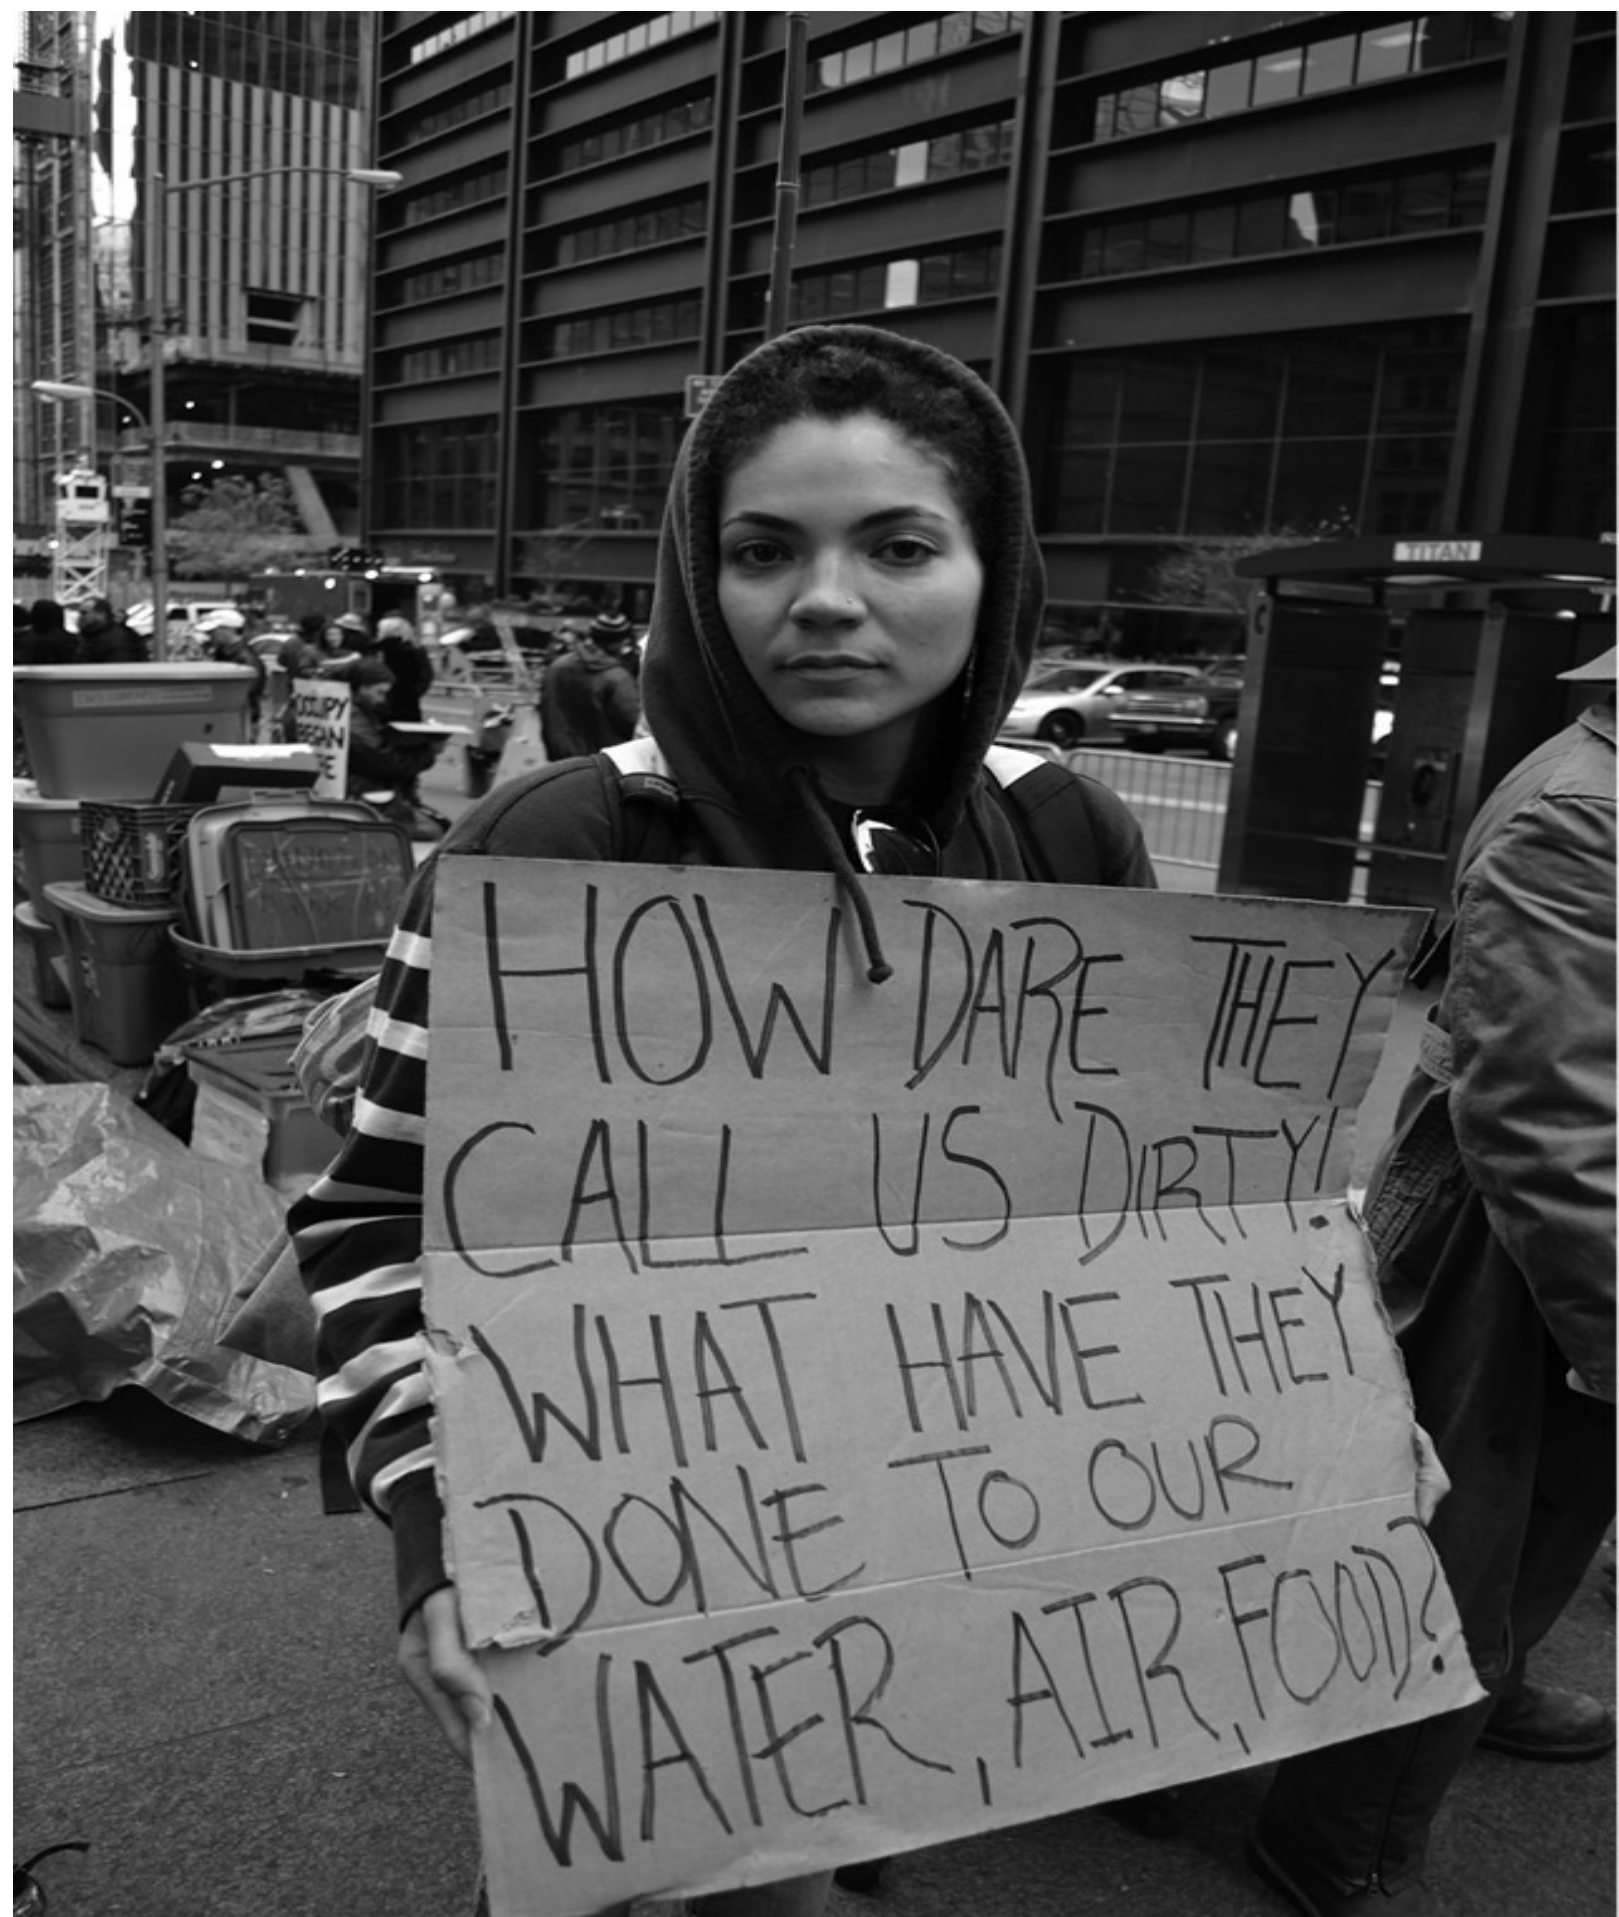 TITAN
OCCUPY
HOW DARE THEY
CALL US DIRTY!
WHAT HAVE THEY
DONE TO OUR
WATER, AIR, FOOD?